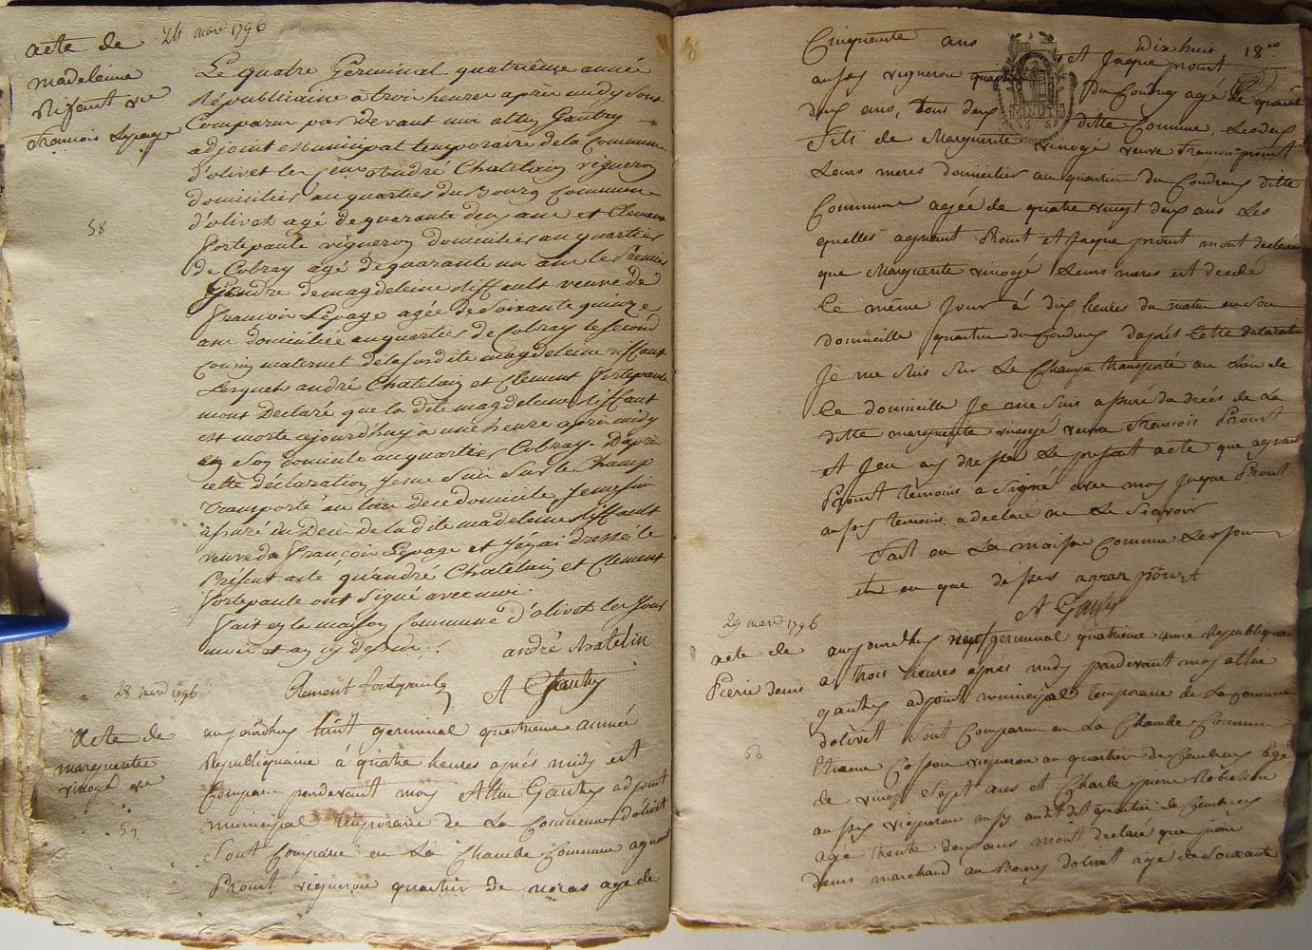 24 mars 1796
acte de
madeleine
Riffaut ve
francois Lepage
58
Le quatre Germinal quatrieme année
Républicaine a trois heures apres midy sont
Comparu par devant moi altin Gautry
adjoint municipal temporaire de la Commune
d'olivet les sieurs andré Chatelain vigneron
domicilier au quartier du Bourg Commune
d'olivet agé de quarante deux ans et Clement
fortepaule vigneron domicilier au quartier
de Cobray agé de quarante un ans le premier
Gendre de magdeleine Riffault veuve de
francois Lepage agée de soixante quinze
ans domiciliée au quartier de Cobray le second
cousin maternel de la ditte magdeleine riffaut
Lesquels andré Chatelain et Clement fortepaule
mont Declaré que la dite magdeleine riffaut
est morte ajourdhuy a une heure aprés midy
en son domicile au quartier Cobray. D'aprè
cette déclaration je me suis sur le Champ
transporté au lieu de ce domicile je me suis
assuré du Deces de la dite madeleine riffault
veuve de françois Lepage et j'ay ai dressé le
Présent acte qu'andré Chatelain et Clement
fortepaule ont signé avec moi.
fait en la maison commune d'olivet les jour
mois et an cy dessus
andré chatelin
Clement fortepaule
A Gautry
28 mars 1796
Acte de
marguerite
vinogé ve
59
aujourdhuy huit germinal quatrieme année
Republiquaine à quatre heures aprés midy est
Comparu pardevant moy Altin Gautry adjoint
municipal temporaire de La Commune d'olivet
Sont Comparu en La Chambe Commune agnant
Prout vigneron quartier de noras age de
Cinquante ans
dix huit 18
et Jaque prout
aussy vigneron quartier Du Coudray agé de quarante
deux ans, tous deux ditte Commune, Lesdeux
fils de Marguerite vinogé veuve francois prout
Leurs meres domicilier au quartier du Coudray ditte
Commune agée de quatre vingt deux ans Les
quelles agnant Prout et Jaque prout mont declarer
que Marguerite vinogé Leurs meres est decedé
Ce même Jour à dix heures du matin en son
domicille quartier du Coudray daprés Cette declaration
Je me suis sur Le Champ transporté au Lieu de
Ce domicille Je me suis assuré du décés de La
ditte marguerite vinogé veuve francois Prout
et Jen ay dressé Le présent acte que agnant
Prout témoins a signé avec moy Jaque Prout
aussy temoins a declaré ne Le Scavoir
fait en La maison Commune Les jour
et en que dessus agnan pourt
A Gautry
29 mars 1796
acte de
Pierre denis
aujourdhuy neuf germinal quatrieme année Republiquaine
a trois heures aprés midy pardevant moy altin
gautry adjoint municipal temporaire de La Commune
dolivet Sont Comparu en La Chambe Commune
Etienne Cosson vigneron au quartier de Caubray agé
de vingt Sept ans et Charle pierre Robillon
aussy vigneron audit quartier de Caubray
age trente deux ans mont declaré que pierre
denis marchand au Bourg dolivet age de Soixante